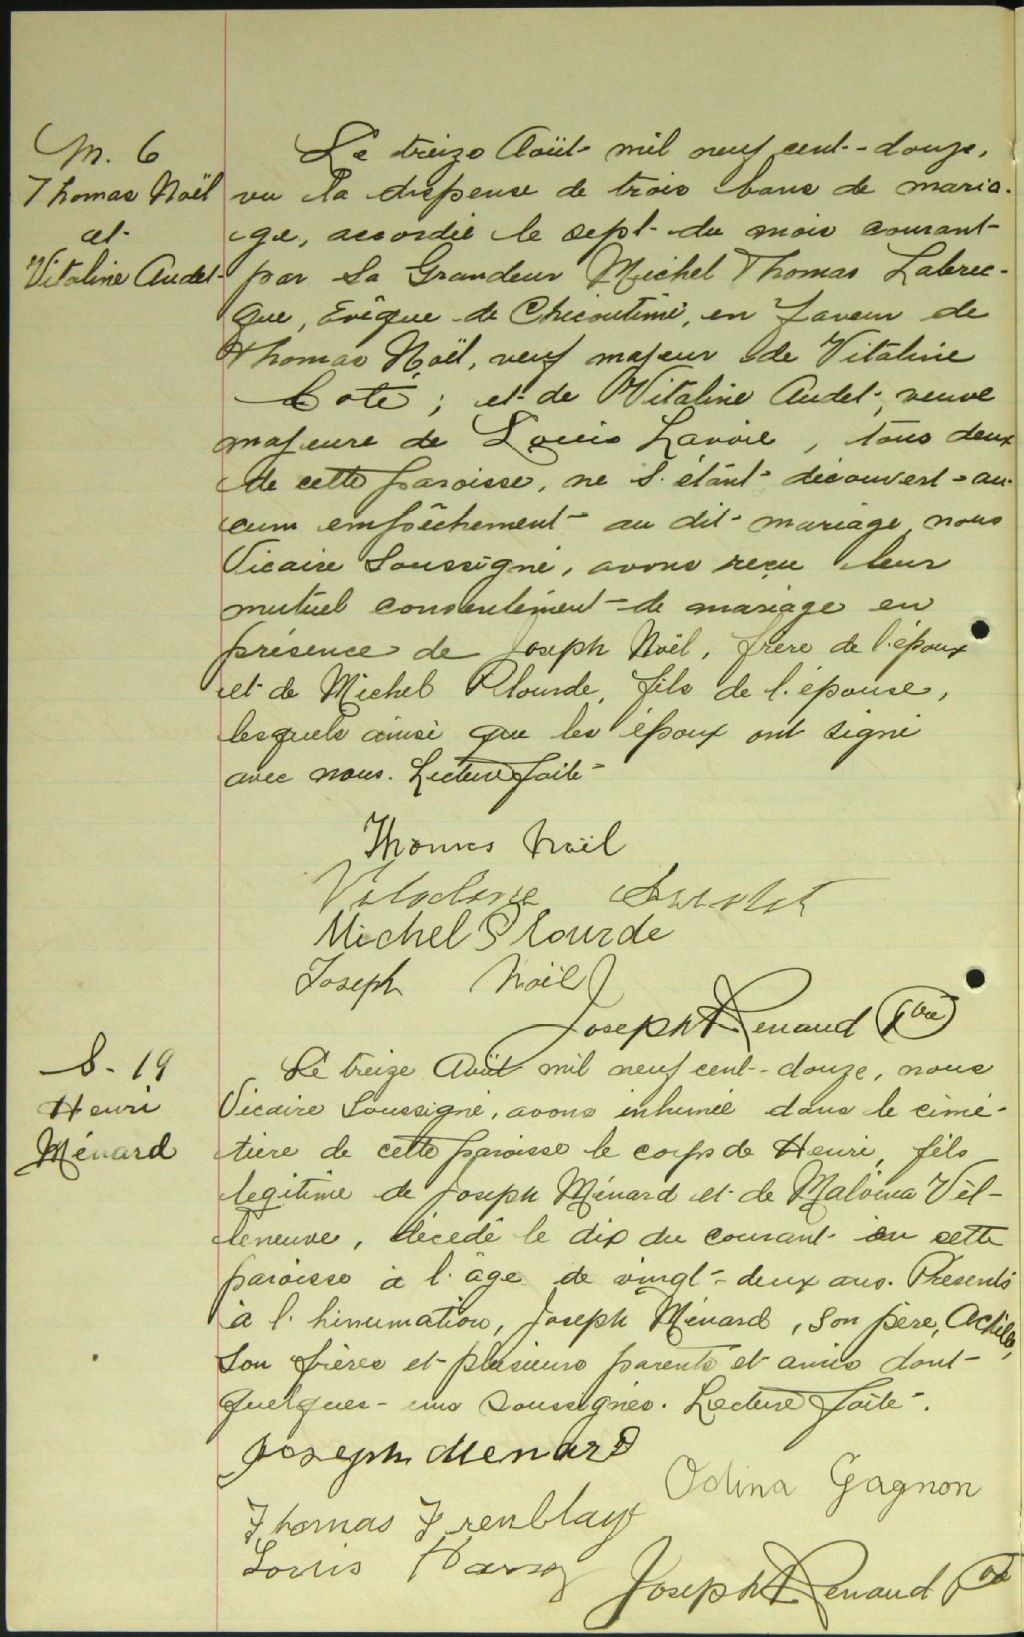 M. 6
Thomas Noël
et
Vitaline Audet
Le treize Août mil neuf cent-douze,
vu la dispense de trois bans de maria-
ge, accordée le sept du mois courant
par Sa Grandeur Michel Thomas Labrec-
que, Evêque de Chicoutimi, en faveur de
Thomas Noël, veuf majeur de Vitaline
Coté; et de Vitaline Audet, veuve
majeure de Louis Lavoie, tous deux
de cette paroisse, ne s'étant découvert au-
cum empêchement au dit mariage, nous
Vicaire Soussigné, avons reçu leur
mutuel consentement de mariage en
présence de Joseph Noël, frère de l'époux
et de Michel Plourde, fils de l'épouse,
lesquels ainsi que les époux ont signé
avec nous. Lecture faite
Thomas Noël
Michel Plourde
Joseph Noël
Joseph Renaud Ptre
S. 19
Henri
Ménard
Le treize Août mil neuf cent-douze, nous
Vicaire Soussigné, avons inhumé dans le cime-
tière de cette paroisse le corps de Henri, fils
légitime de Joseph Ménard et de Malvina Vil-
leneuve, décédé le dix du courant en cette
paroisse à l'âge de vingt-deux ans. Présents
à l'hinumation, Joseph Ménard, son père, Achille,
son frères et plusieurs parents et amis dont
quelques-uns soussignés. Lecture faite.
Joseph Menard
Odina Gagnon
Thomas Tremblay
Louis
Joseph Renaud Ptre